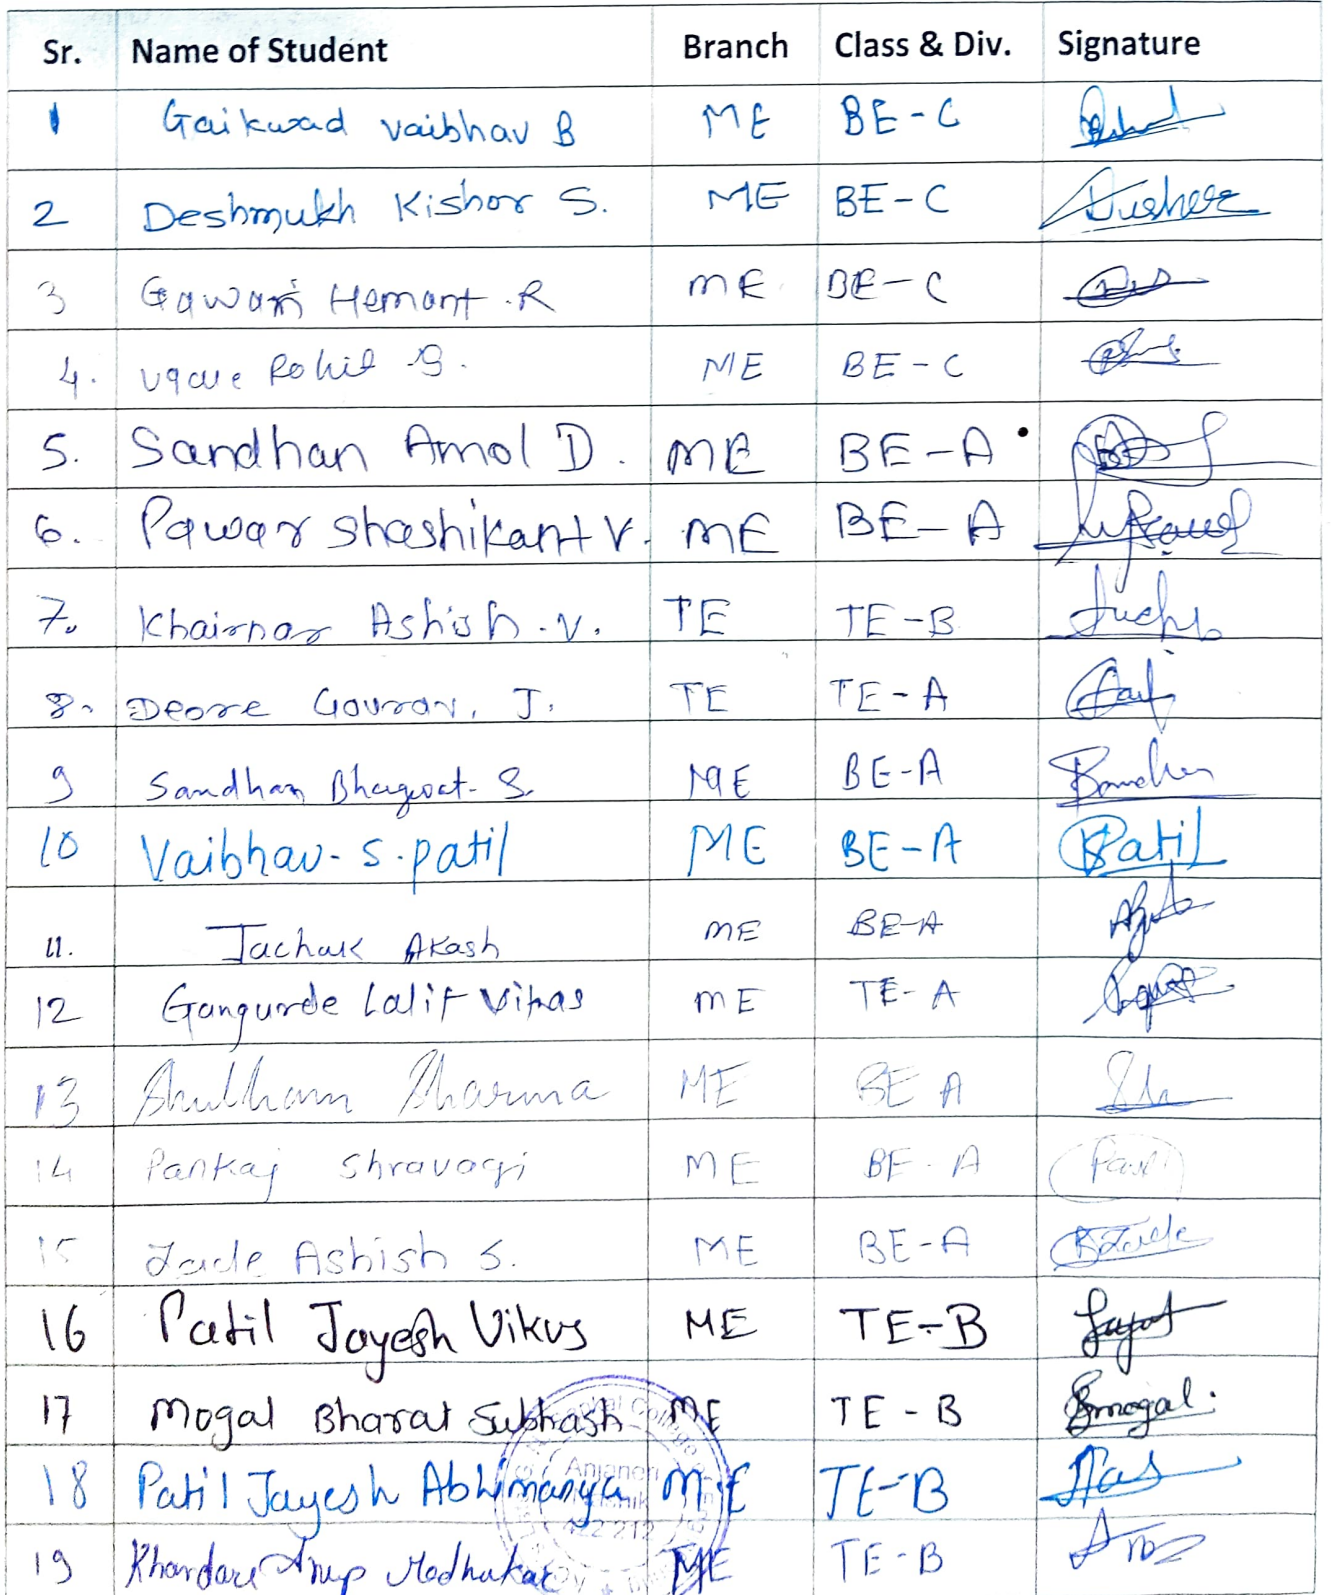 Sr. Name of Student Branch Class & Div. Signature
1 Gaikwad Vaibhav B ME BE-C
2 Deshmukh Kishor S. ME BE-C
3 Gawari Hemant .R ME BE-C
4. Rohit S. ME BE-C
5. Sandhan Amol D. ME BE-A
6. Pawar Shashikant V. ME BE-A
7. Khairnar Ashish .V. TE TE-B
8. Deore Gourav. J. TE TE-A
9 Sandhan Bhagwat- S. ME BE-A
10 Vaibhav- S. patil ME BE-A Patil
11. Jachak Akash ME BE-A
12 Gangurde Lalit Vikas ME TE-A
13 Shubham Sharma ME BE A
14 Pankaj Shravagi ME BE-A
15 Zade Ashish S. ME BE-A
16 Patil Jayesh Vikas ME TE-B
17 Mogal Bharat Subhash ME TE-B Bmogal.
18 Patil Jayesh Abhimanyu ME TE-B
Anjaneri
422 212
19 Khandare Anup Madhukar ME TE-B